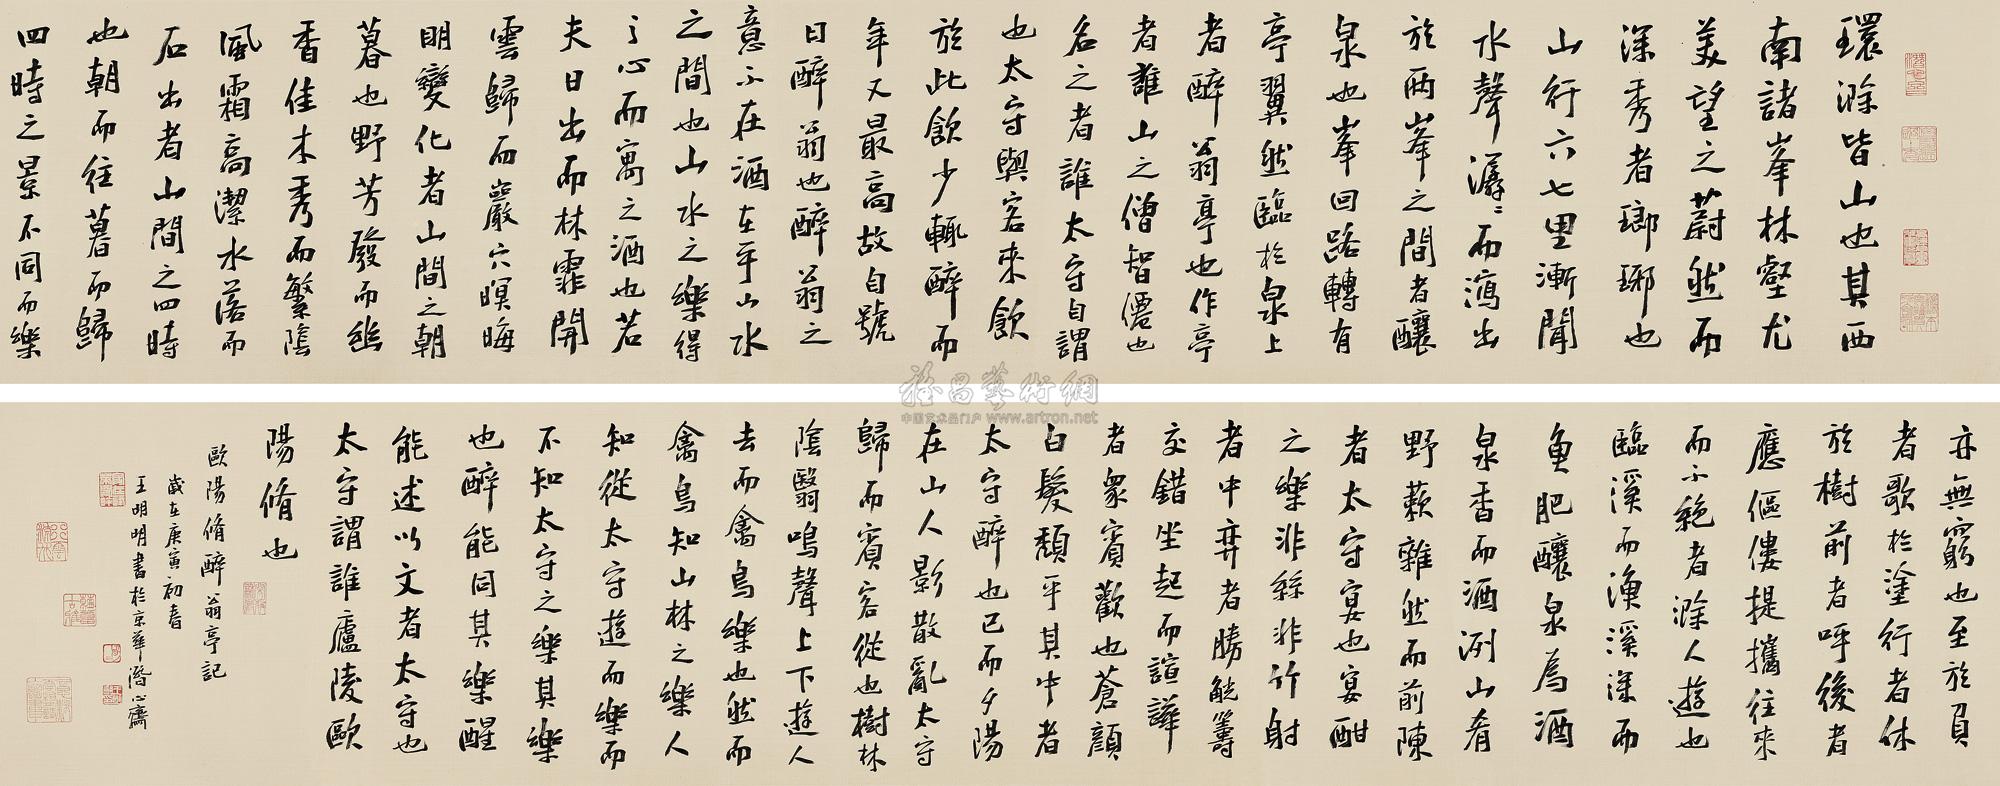 環滁皆山也其西
南諸峯林壑尤
美望之蔚然而
深秀者瑯琊也
山行六七里漸聞
水聲潺潺而瀉出
於兩峯之間者釀
泉也峯回路轉有
亭翼然臨於泉上
者醉翁亭也作亭
者誰山之僧智僊也
名之者誰太守自謂
也太守與客來飲
於此飲少輒醉而
年又最高故自號
曰醉翁也醉翁之
意不在酒在乎山水
之間也山水之樂得
之心而寓之酒也若
夫日出而林霏開
雲歸而巖穴暝晦
明變化者山間之朝
暮也野芳發而幽
香佳木秀而繁陰
風霜高潔水落而
石出者山間之四時
也朝而往暮而歸
四時之景不同而樂
亦無窮也至於負
者歌於塗行者休
於樹前者呼後者
應傴僂提攜往來
而不絕者滁人遊也
臨溪而漁溪深而
魚肥釀泉為酒
泉香而酒洌山肴
野蔌雜然而前陳
者太守宴也宴酣
之樂非絲非竹射
者中弈者勝觥籌
交錯坐起而諠譁
者衆賓歡也蒼顏
白髮頹乎其中者
太守醉也已而夕陽
在山人影散亂太守
歸而賓客從也樹林
陰翳鳴聲上下遊人
去而禽鳥樂也然而
禽鳥知山林之樂人
知從太守遊而樂而
不知太守之樂其樂
也醉能同其樂醒
能述以文者太守也
太守謂誰廬陵歐
陽脩也
歐陽脩醉翁亭記
歲在庚寅初春
王明明書於京華潛心齋
雅昌藝術網
中国艺术品门户 www.artron.net